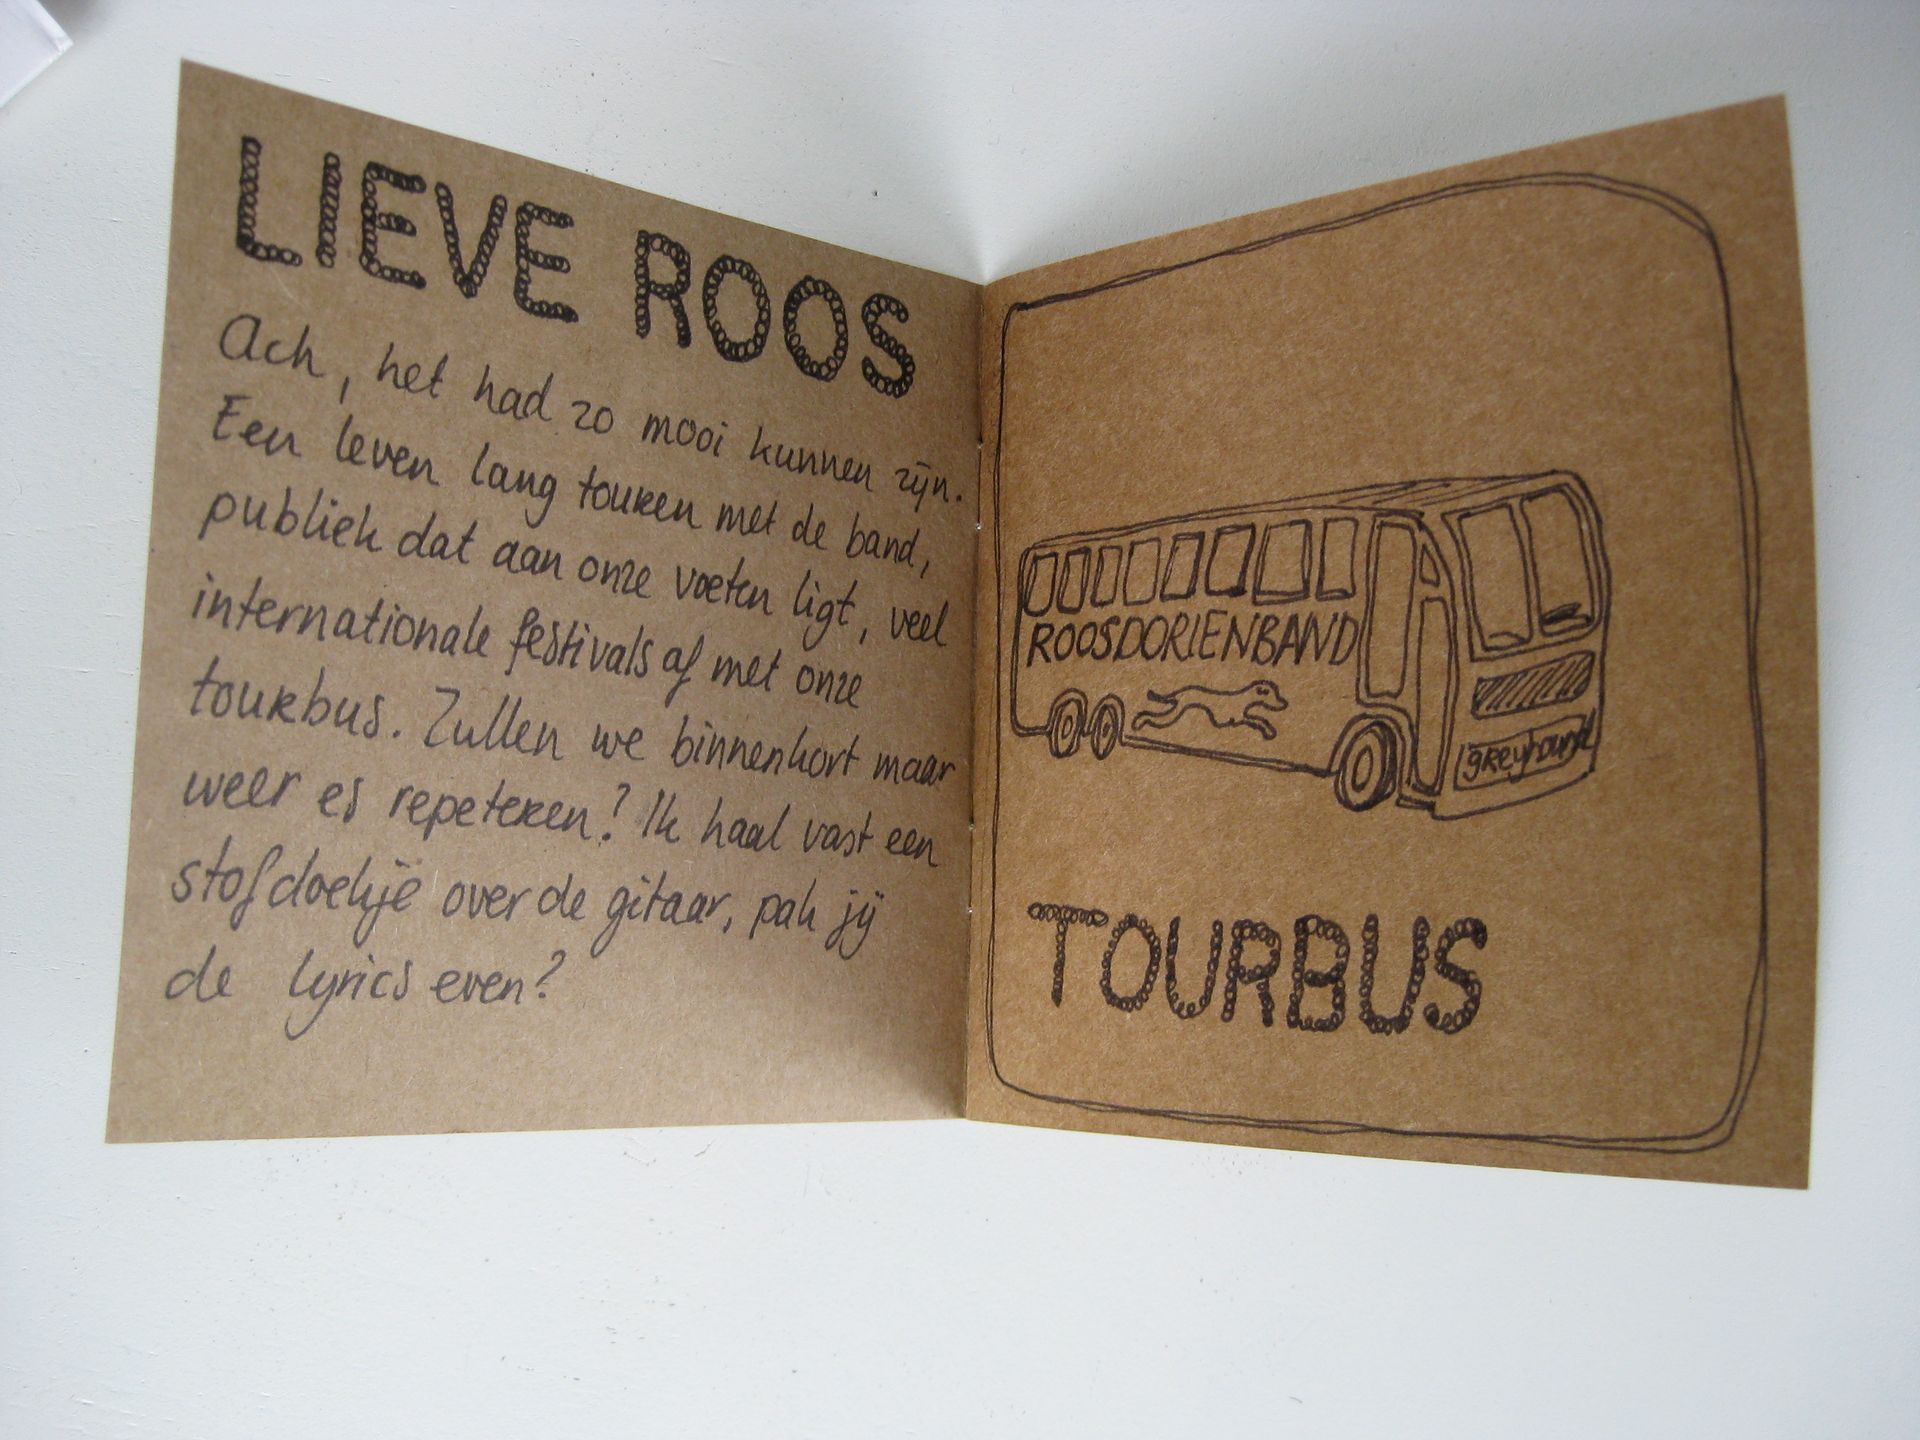 LIEVE ROOS
Ach, het had zo mooi kunnen zijn.
Een leven lang touren met de band,
publiek dat aan onze voeten ligt, veel
internationale festivals af met onze
tourbus. Zullen we binnenkort maar
weer es repeteren? Ik haal vast een
stofdoekje over de gitaar, pak jij
de lyrics even?
ROOSDORIENBAND
greyhound
TOURBUS